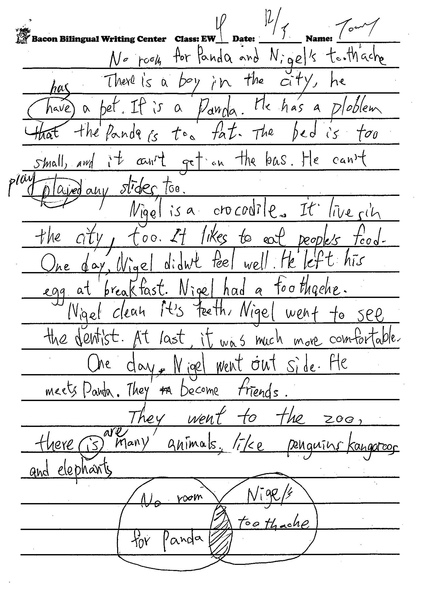 Bacon Bilingual Writing Center Class: EW 4 Date: 12/5 Name: Tony
No room for Panda and Nigel's toothache
There is a boy in the city, he
has
have a pet. It is a Panda. He has a ploblem
that the Panda is too fat. The bed is too
small, and it can't get on the bus. He can't
play
played any slides too.
Nigel is a crocodile. It live in
the city, too. It likes to eat people's food.
One day, Nigel didn't feel well. He left his
egg at breakfast. Nigel had a toothache.
Nigel clean it's teeth, Nigel went to see
the dentist. At last, it was much more comfortable.
One day, Nigel went out side. He
meets Panda. They become friends.
They went to the zoo,
are
there is many animals, like penguins kangaroos
and elephants
No room
for Panda
Nigel's
toothache